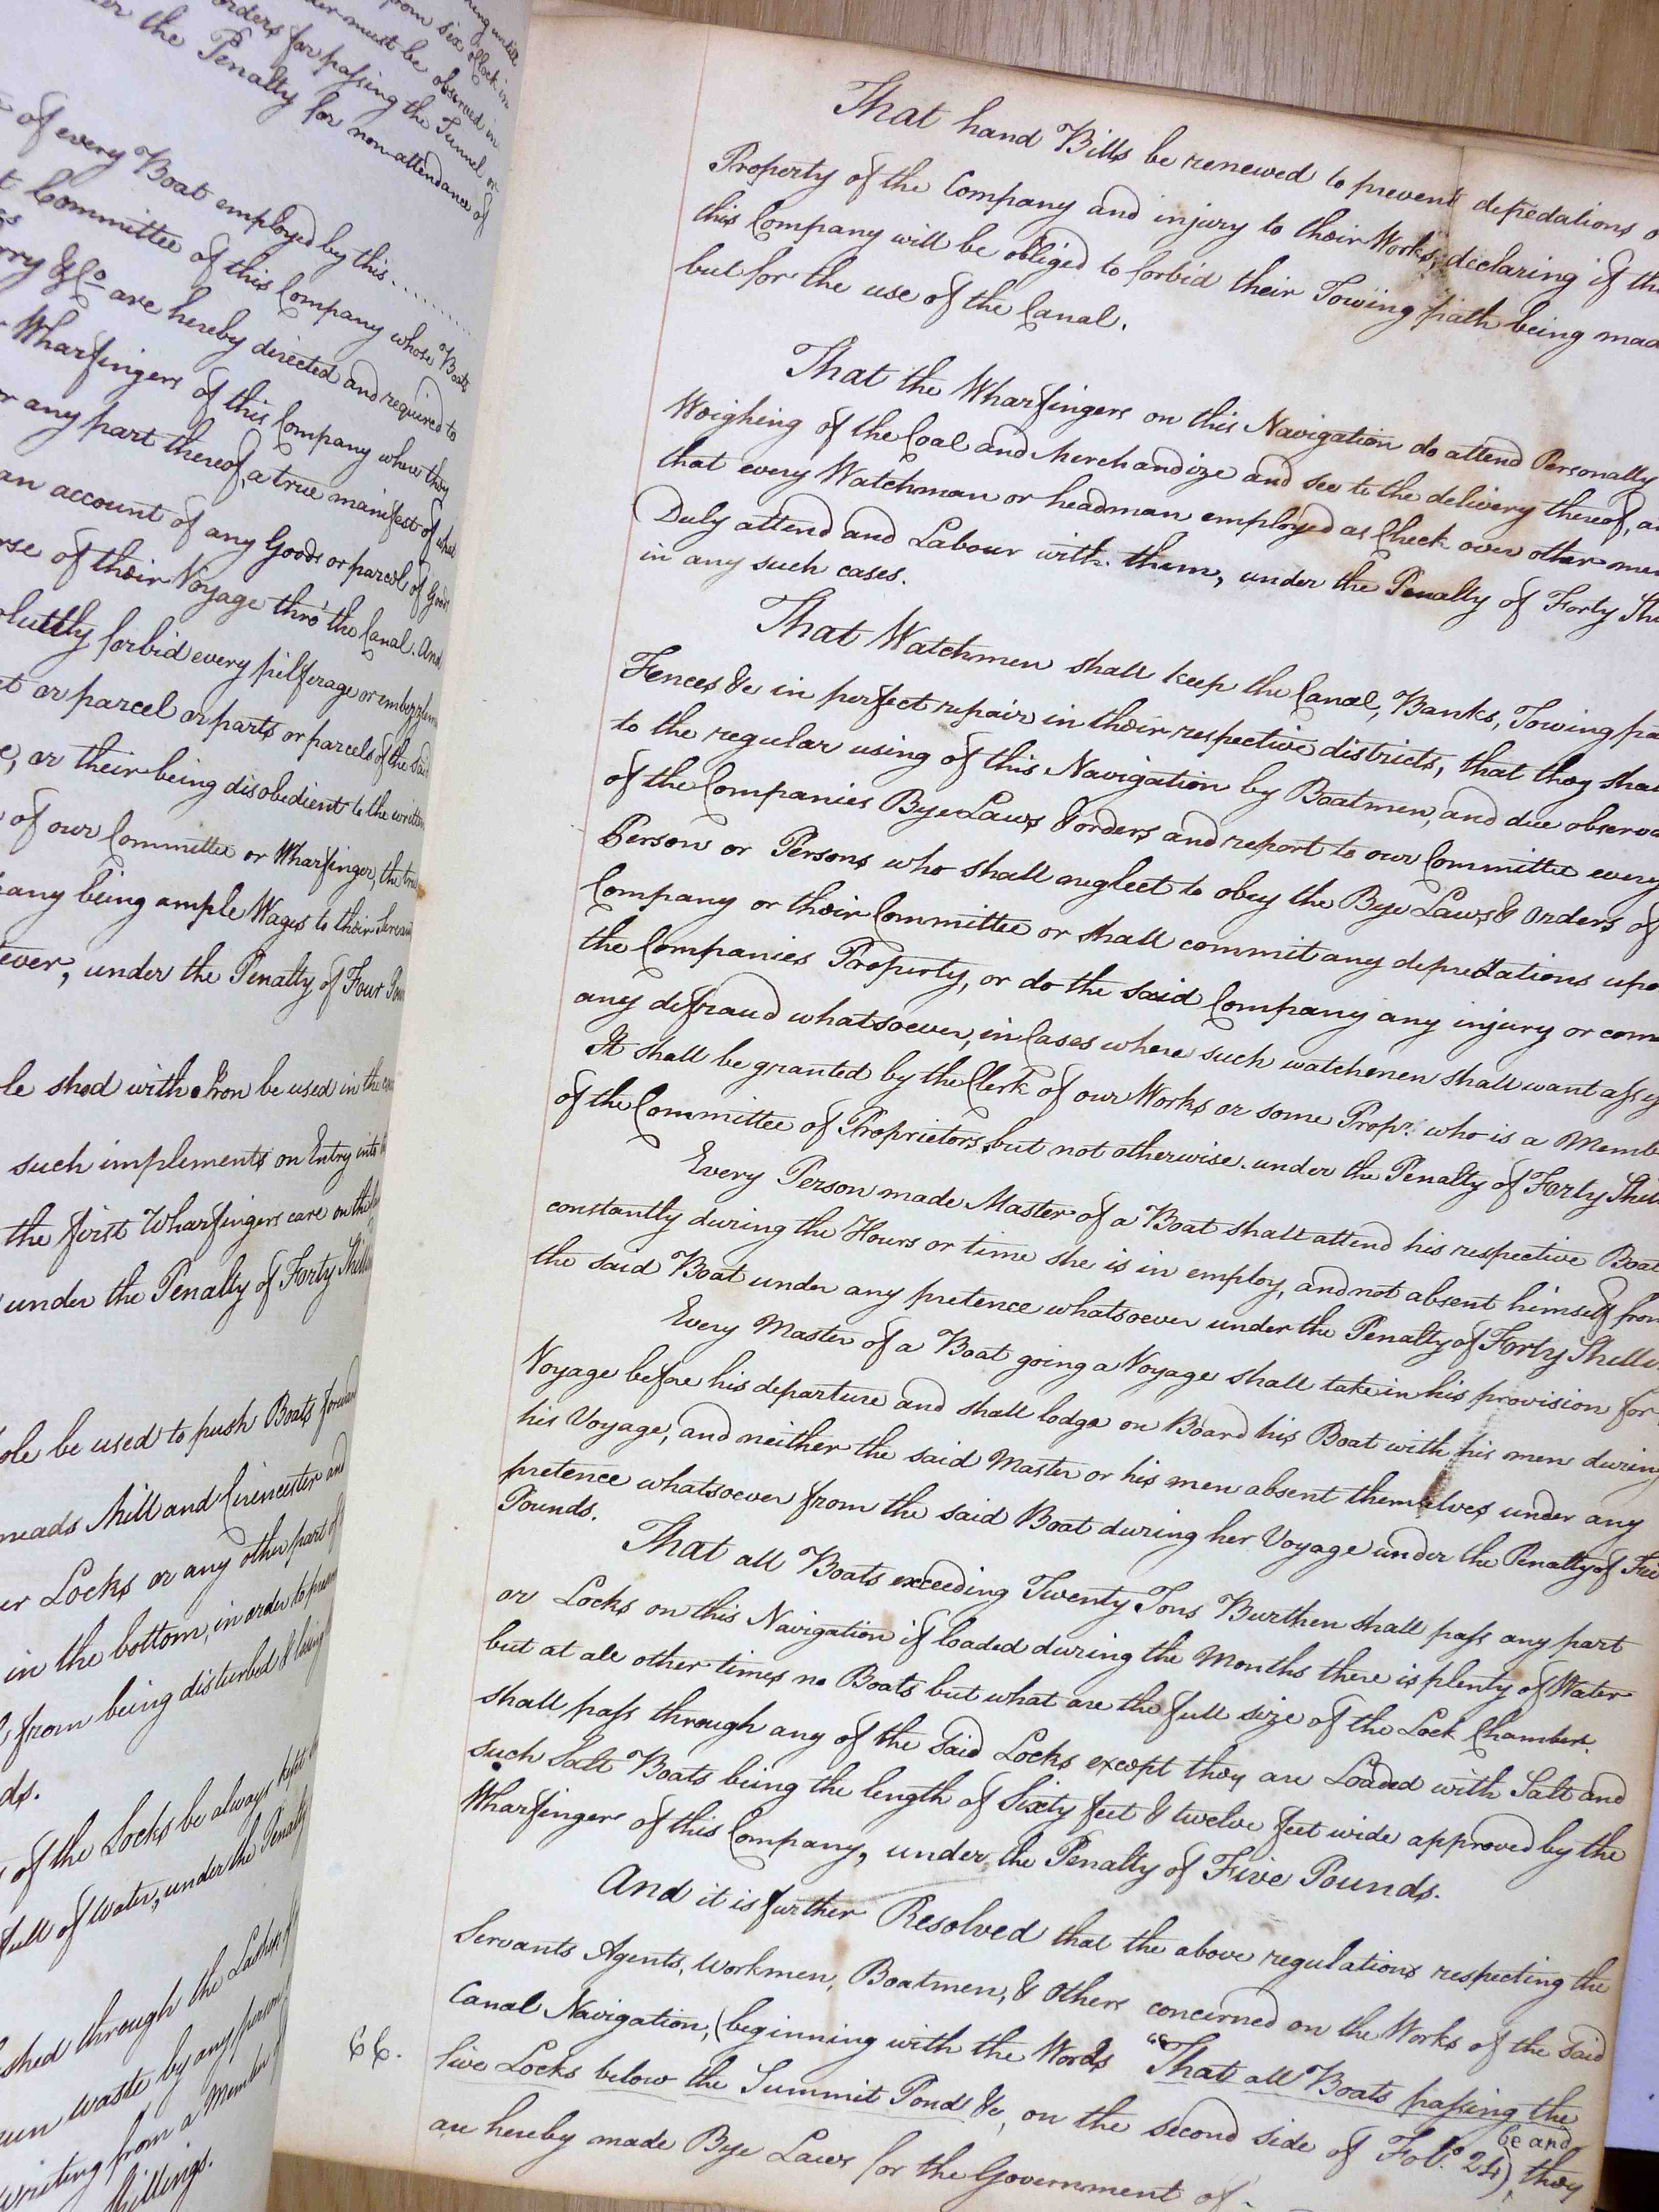 orders for passing the Tunnel or
the Penalty for non-attendance of
of every Boat employed by this ........
Committee of this Company whose Boats
&Co are hereby directed and required to
Wharfingers of this Company when they
or any part thereof, a true manifest of what
an account of any Goods or parcel of Goods
of their Voyage thro' the Canal. And
forbid every pilferage or
or parcel or parts or parcels of the said
or their being disobedient to the written
of our Committee or Wharfinger, the
being ample Wages to their
under the Penalty of Four
shod with Iron be used in the
such implements on Entry into
the first Wharfingers care on the
under the Penalty of Forty
be used to push Boats forward
Mill and Cirencester and
Locks or any other part of
in the bottom, in order to
from being disturbed &
of the Locks be always kept
full of Water, under the Penalty
through the
waste by any person
writing from a Member of
That hand Bills be renewed to prevent depredations
Property of the Company and injury to their Works, declaring if
this Company will be obliged to forbid their Towing path being
but for the use of the Canal.
That the Wharfingers on this Navigation do attend Personally
Weighing of the Coal and Merchandize and see to the delivery thereof,
that every Watchman or headman employed as Check over other
Duly attend and Labour with them, under the Penalty of Forty
in any such cases.
That Watchmen shall keep the Canal, Banks, Towing
Fences &c in perfect repair in their respective districts, that they
to the regular using of this Navigation by Boatmen, and due
of the Companies Bye Laws & orders and report to our Committee every
Person or Persons who shall neglect to obey the Bye Laws & Orders of
Company or their Committee or shall commit any depredations
the Companies Property, or do the said Company any injury or
any defraud whatsoever, in Cases where such watchmen shall want
It shall be granted by the Clerk of our Works or some Propr. who is a
of the Committee of Proprietors but not otherwise. under the Penalty of Forty
Every Person made Master of a Boat shall attend his respective Boat
constantly during the Hours or time she is in employ, and not absent himself from
the said Boat under any pretence whatsoever under the Penalty of Forty
Every Master of a Boat going a Voyage shall take in his provision for
Voyage before his departure and shall lodge on Board his Boat with his men during
his Voyage, and neither the said Master or his men absent themselves under any
pretence whatsoever from the said Boat during her Voyage under the Penalty of
Pounds.
That all Boats exceeding Twenty Tons Burthen shall pass any part
or Locks on this Navigation if loaded during the Months there is plenty of Water
but at all other times no Boats but what are the full size of the Lock Chamber.
shall pass through any of the said Locks except they are Loaded with Salt and
such Salt Boats being the length of Sixty feet & twelve feet wide approved by the
Wharfinger of this Company, under the Penalty of Five Pounds.
And it is further Resolved that the above regulations respecting the
Servants Agents, Workmen, Boatmen, & Others concerned on the Works of the said
Canal Navigation, (beginning with the Words "That all Boats passing the
66. five Locks below the Summit Pond &c, on the second side of Folo. 24) be and they
are hereby made Bye Laws for the Government of